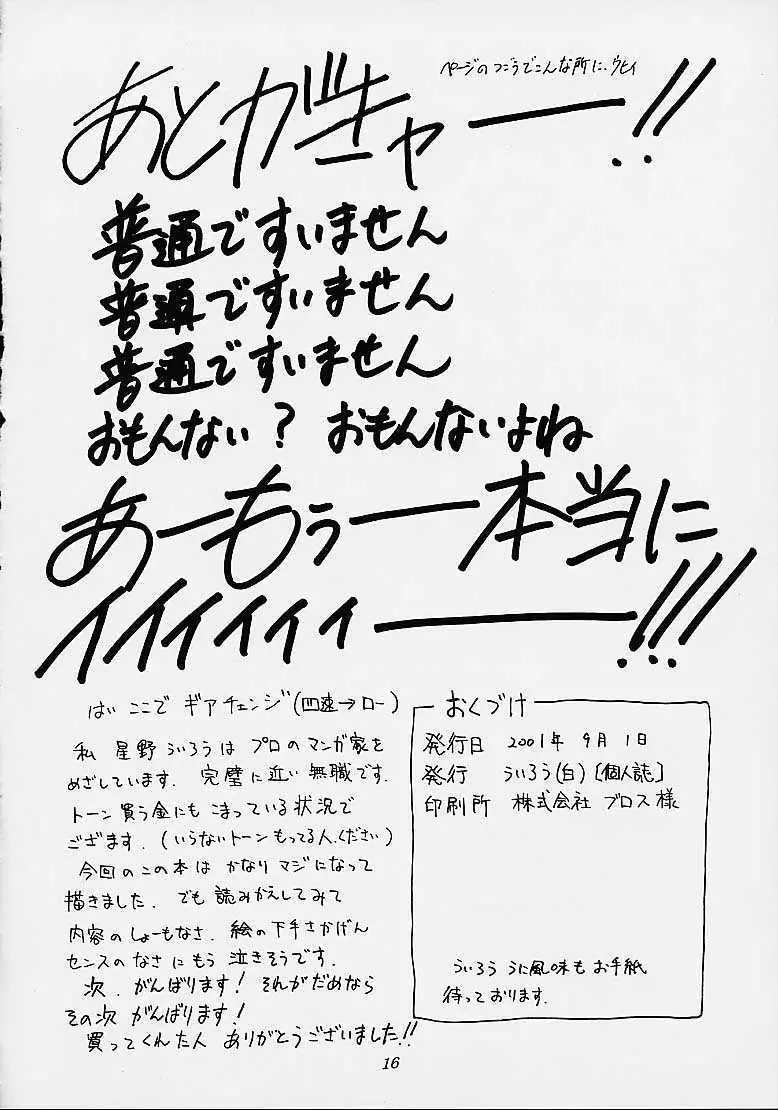 ページのつごうでこんな所に、ウヒィ
あとがキャー!!
普通ですいません
普通ですいません
普通ですいません
おもんない? おもんないよね
あーもぅー本当に
イイイイィィー!!!
はい ここで ギアチェンジ(四速→ロー)
私 星野ういろうは プロのマンガ家を
めざしています. 完璧に近い無職です.
トーン買う金にも こまっている状況で
ござます. (いらないトーンもってる人.ください)
今回のこの本は かなりマジになって
描きました. でも 読みかえしてみて
内容のしょーもなさ. 絵の下手さかげん
センスのなさにもう 泣きそうです.
次. がんばります! それがだめなら
その次 がんばります!
買ってくれた人 ありがとうございました!!
おくづけ
発行日 2001年 9月1日
発行 ういろう(白)[個人誌]
印刷所 株式会社 ブロス様
ういろう うに風味も お手紙
待っております.
16